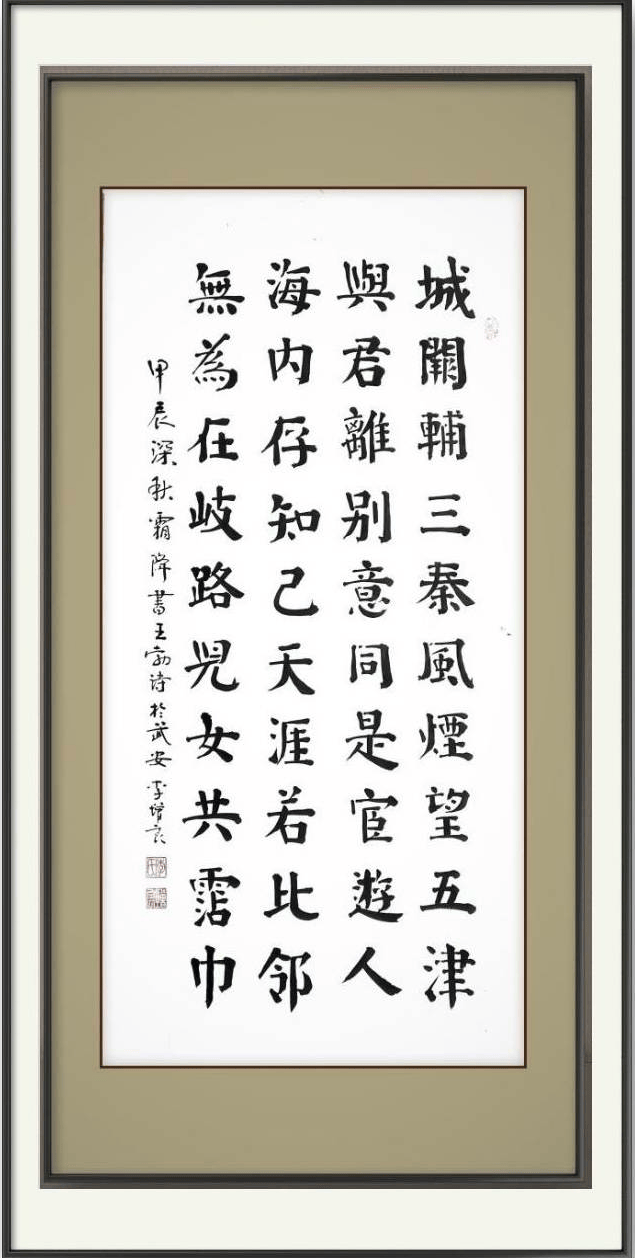 城闕輔三秦風煙望五津
與君離别意同是宦遊人
海内存知己天涯若比邻
無為在岐路児女共霑巾
甲辰深秋霜降書王勃诗於武安李增良